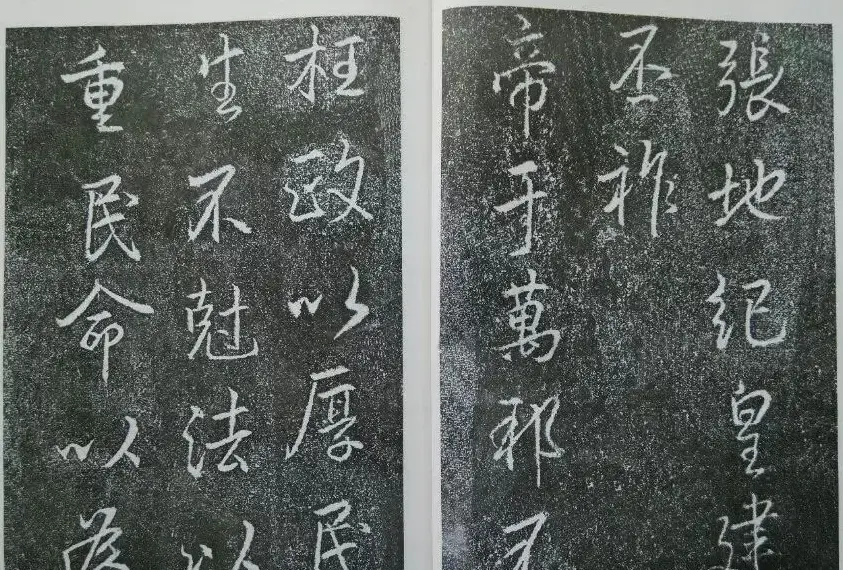 張地紀皇建
丕祚
帝于萬邦不
枉政以厚民
生不尅法以
重民命以為